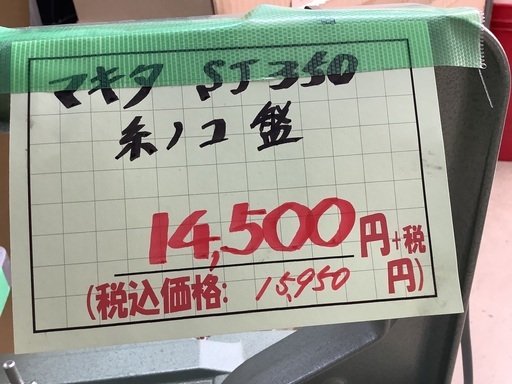 マキタ SJ350
糸ノコ盤
14,500円+税
(税込価格: 15,950円)